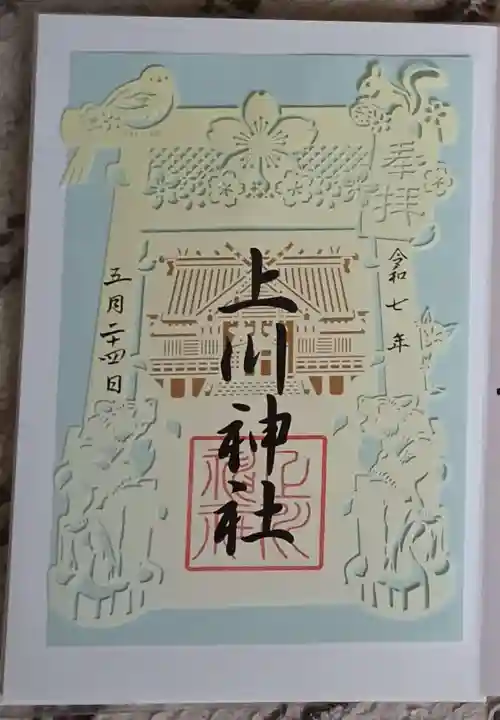 奉拝
令和七年
上川神社
五月二十四日